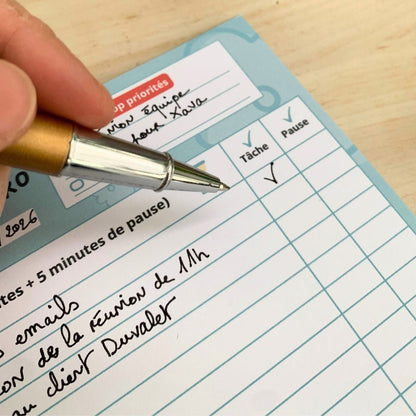 op priorités
nion équipe
pour Xava
✓ Tâche
✓ Pause
✓
RO
/ 2026
tes + 5 minutes de pause)
s emails
on de la réunion de 11h
au client Duvalet